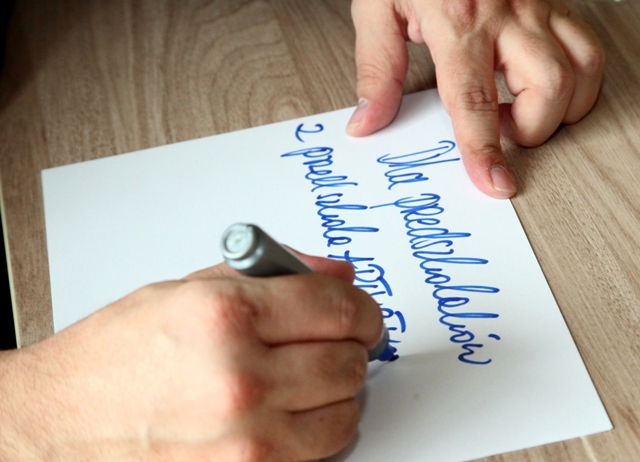 Dla przedszkolaków
z przedszkola